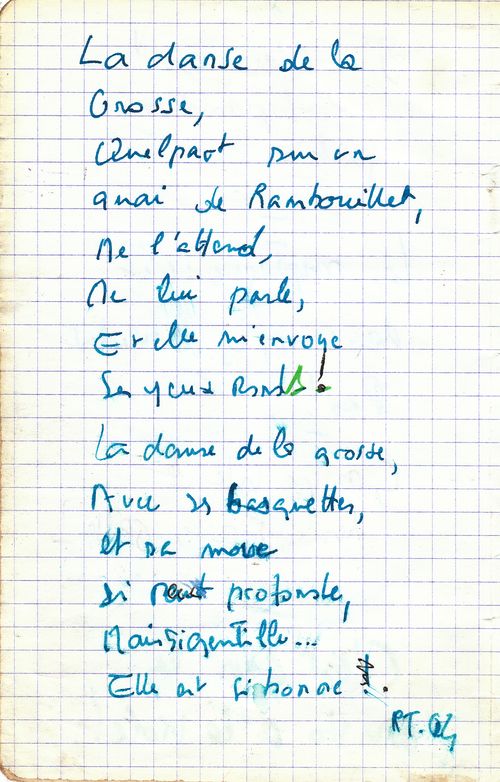 La danse de la
Grosse,
Quelpart sur un
quai de Rambouillet,
Je l'attend,
Je lui parle,
Et elle m'envoye
Ses yeux Ronds!
La danse de la grosse,
Avec ses basquettes,
et sa moue
si peut profonde,
Mais si gentille...
Elle est si bonne !
RT.04